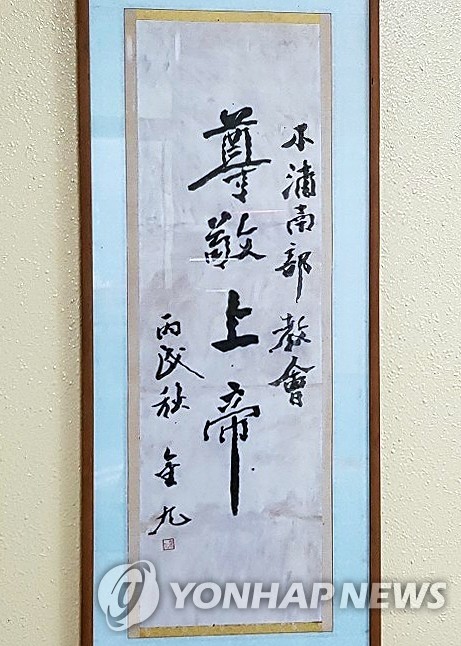 木浦南部教會
尊敬上帝
丙戌秋 金九
YONHAP NEWS